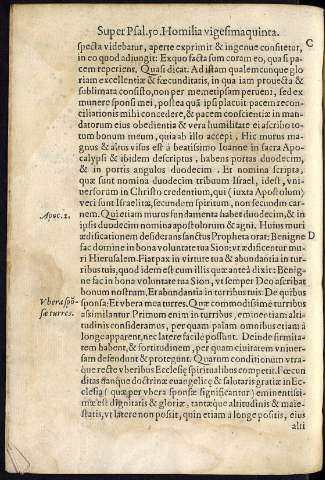 Super Psal.50. Homilia vigesimaquinta.
specta videbatur, aperte exprimit & ingenue confitetur,
C
in eo quod adiungit: Ex quo facta sum coram eo, quasi pa-
cem reperiens. Quasi dicat. Ad istam qualemcunque glo-
riam excellentiæ & fœcunditatis, in qua iam prouecta &
sublimata consisto, non per memetipsam perueni, sed ex
munere sponsi mei, postea quā ipsi placuit pacem recon-
ciliationis mihi concedere, & pacem conscientiæ in man-
datorum eius obedientia & vera humilitate ei ascribo to-
tum bonum meum, quia ab illo accepi. Hic murus mag-
nus & altus visus est à beatissimo Ioanne in sacra Apo-
calypsi & ibidem descriptus, habens portas duodecim,
& in portis angulos duodecim. Et nomina scripta,
quæ sunt nomina duodecim tribuum Israel, idest, vni-
uersorum in Christo credentium, qui (iuxta Apostolum)
veri sunt Israelitæ, secundum spiritum, non secundum car-
Apoc. 2.
nem. Qui etiam murus fundamenta habet duodecim, & in
ipsis duodecim nomina apostolorum & agni. Huius muri
ædificationem desiderans sanctus Propheta orat: Benigne
D
fac domine in bona voluntate tua Sion: vt ædificentur mu-
ri Hierusalem. Fiat pax in virtute tua & abundantia in tur-
ribus tuis, quod idem est cum illis quæ anteā dixit: Benig-
ne fac in bona voluntate tua Sion, vt semper Deo ascribat
bonum nostrum. Et abundantia in turribus tuis: De quibus
Vbera spō-
sæ turres.
sponsa: Et vbera mea turres. Quæ commodissime turribus
assimilantur Primum enim in turribus, eminentiam alti-
tudinis consideramus, per quam palam omnibus etiam à
longe apparent, nec latere facile possunt. Deinde firmita-
tem habent, & fortitudinem, per quam ciuitatem vniuer-
sam defendunt & protegunt. Quarum conditionum vtra-
que recte vberibus Ecclesiæ spiritualibus competit. Fœcun-
ditas nanque doctrinæ euangelicę & salutaris gratiæ in Ec-
clesia (quæ per vbera sponsæ significantur) eminentissi-
mæ est dignitatis & gloriæ, tantæque altitudinis & maie-
statis, vt latere non possit, quin etiam à longe positis, eius
alti